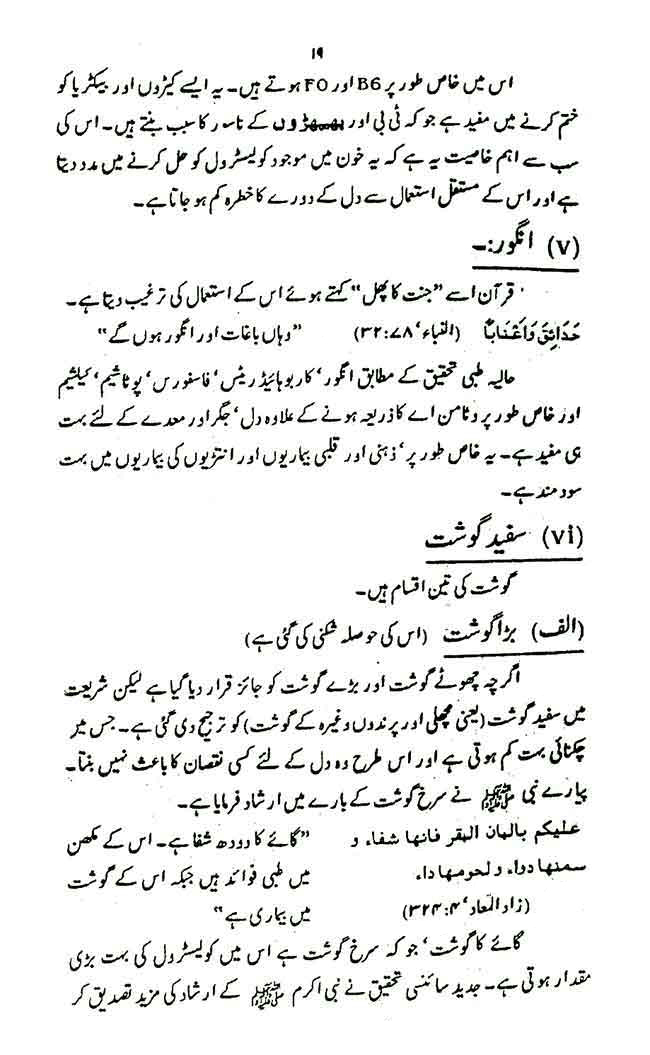 ۱۹
اس میں خاص طور پر B6 اور FO ہوتے ہیں۔ یہ ایسے کیڑوں اور بیکٹریا کو
ختم کرنے میں مفید ہے جو کہ ٹی بی اور پھیپھڑوں کے ناسور کا سبب بنتے ہیں۔ اس کی
سب سے اہم خاصیت یہ ہے کہ یہ خون میں موجود کولیسٹرول کو حل کرنے میں مدد دیتا
ہے اور اس کے مستقل استعمال سے دل کے دورے کا خطرہ کم ہو جاتا ہے۔
(v) انگور:۔
قرآن اسے "جنت کا پھل" کہتے ہوئے اس کے استعمال کی ترغیب دیتا ہے۔
حَدَائِقَ وَاَعْنَابًا (النباء، ۷۸:۳۲) "وہاں باغات اور انگور ہوں گے"
حالیہ طبی تحقیق کے مطابق انگور، کاربوہائیڈریٹس، فاسفورس، پوٹاشیم، کیلشیم
اور خاص طور پر وٹامن اے کا ذریعہ ہونے کے علاوہ دل، جگر اور معدے کے لئے بہت
ہی مفید ہے۔ یہ خاص طور پر، ذہنی اور قلبی بیماریوں اور انتڑیوں کی بیماریوں میں بہت
سود مند ہے۔
(vi) سفید گوشت
گوشت کی تین اقسام ہیں۔
(الف) بڑا گوشت (اس کی حوصلہ شکنی کی گئی ہے)
اگرچہ چھوٹے گوشت اور بڑے گوشت کو جائز قرار دیا گیا ہے لیکن شریعت
میں سفید گوشت (یعنی مچھلی اور پرندوں وغیرہ کے گوشت) کو ترجیح دی گئی ہے۔ جس میں
چکنائی بہت کم ہوتی ہے اور اس طرح وہ دل کے لئے کسی نقصان کا باعث نہیں بنتا۔
پیارے نبی ﷺ نے سرخ گوشت کے بارے میں ارشاد فرمایا ہے۔
علیکم بالبان البقر فانھا شفاء و "گائے کا دودھ شفا ہے۔ اس کے مکھن
سمنھا دواء و لحومھا داء۔ میں طبی فوائد ہیں جبکہ اس کے گوشت
(زاد المعاد، ۴:۳۲۴) میں بیماری ہے"
گائے کا گوشت، جو کہ سرخ گوشت ہے اس میں کولیسٹرول کی بہت بڑی
مقدار ہوتی ہے۔ جدید سائنسی تحقیق نے نبی اکرم ﷺ کے ارشاد کی مزید تصدیق کر